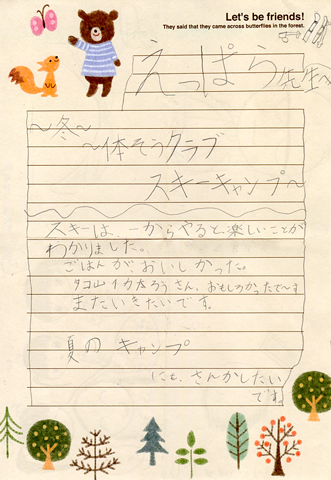 Let's be friends!
They said that they came across butterflies in the forest.
えっぱら先生へ
～冬～
～体そうクラブ
スキーキャンプ～
スキーは、一からやると、楽しいことが
わかりました。
ごはんが、おいしかった。
タコ山イカたろうさん、おもしろかったで～す
またいきたいです。
夏のキャンプ
にも、さんかしたい
です。